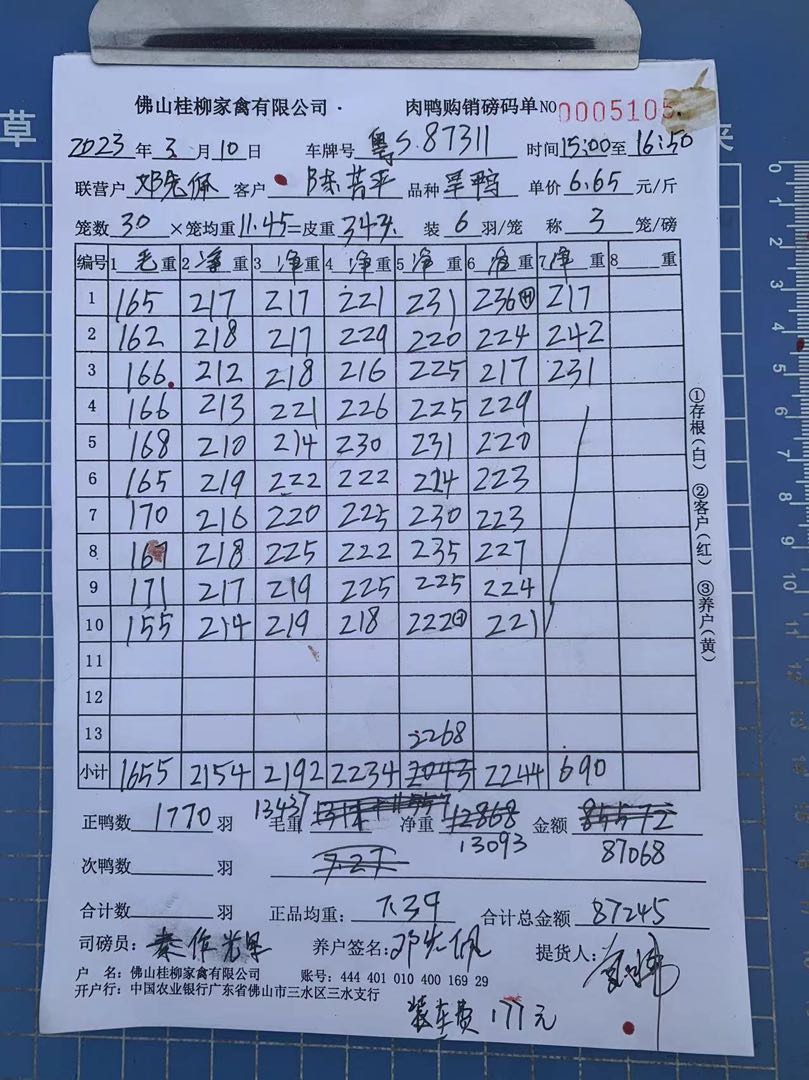 草
佛山桂柳家禽有限公司· 肉鸭购销磅码单NO 0005105
2023年3月10日 车牌号 粤S.87311 时间15:00至16:50
联营户 邓先佩 客户 陈芳平 品种 旱鸭 单价6.65元/斤
笼数30×笼均重11.45=皮重343. 装6羽/笼 称3笼/磅
编号 1毛重 2净重 3净重 4净重 5净重 6净重 7净重 8重
1 165 217 217 221 231 236 217
2 162 218 217 229 220 224 242
3 166 212 218 216 225 217 231
4 166 213 221 226 225 229
5 168 210 214 230 231 220
6 165 219 222 222 224 223
7 170 216 220 225 230 223
8 167 218 225 222 235 227
9 171 217 219 225 225 224
10 155 214 219 218 222 221
11
12
13 2268
小计 1655 2154 2192 2234 2043 2244 690
正鸭数1770羽 毛重13437 净重12868 金额85572
13093 87068
次鸭数羽 7.27
合计数羽 正品均重:7.39 合计总金额87245
司磅员: 养户签名:邓先佩 提货人:
户 名:佛山桂柳家禽有限公司 账号:444 401 010 400 169 29
开户行:中国农业银行广东省佛山市三水区三水支行
装车费 177元
①存根(白) ②客户(红) ③养户(黄)
0
1
2
3
4
5
6
7
8
9
10
11
12
13